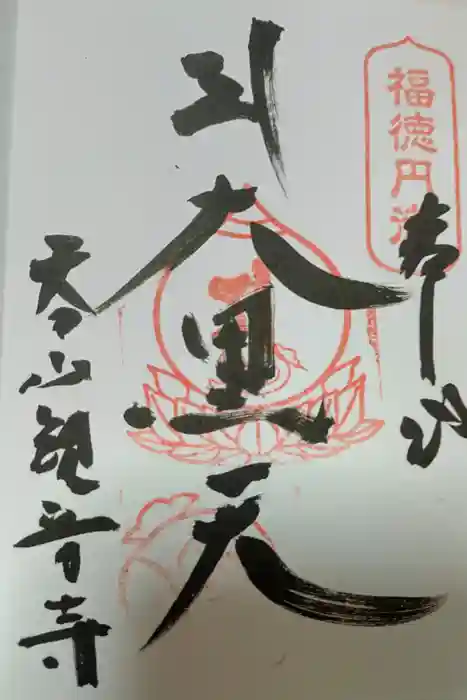 福徳円満
奉拝
大黒天
山観音寺